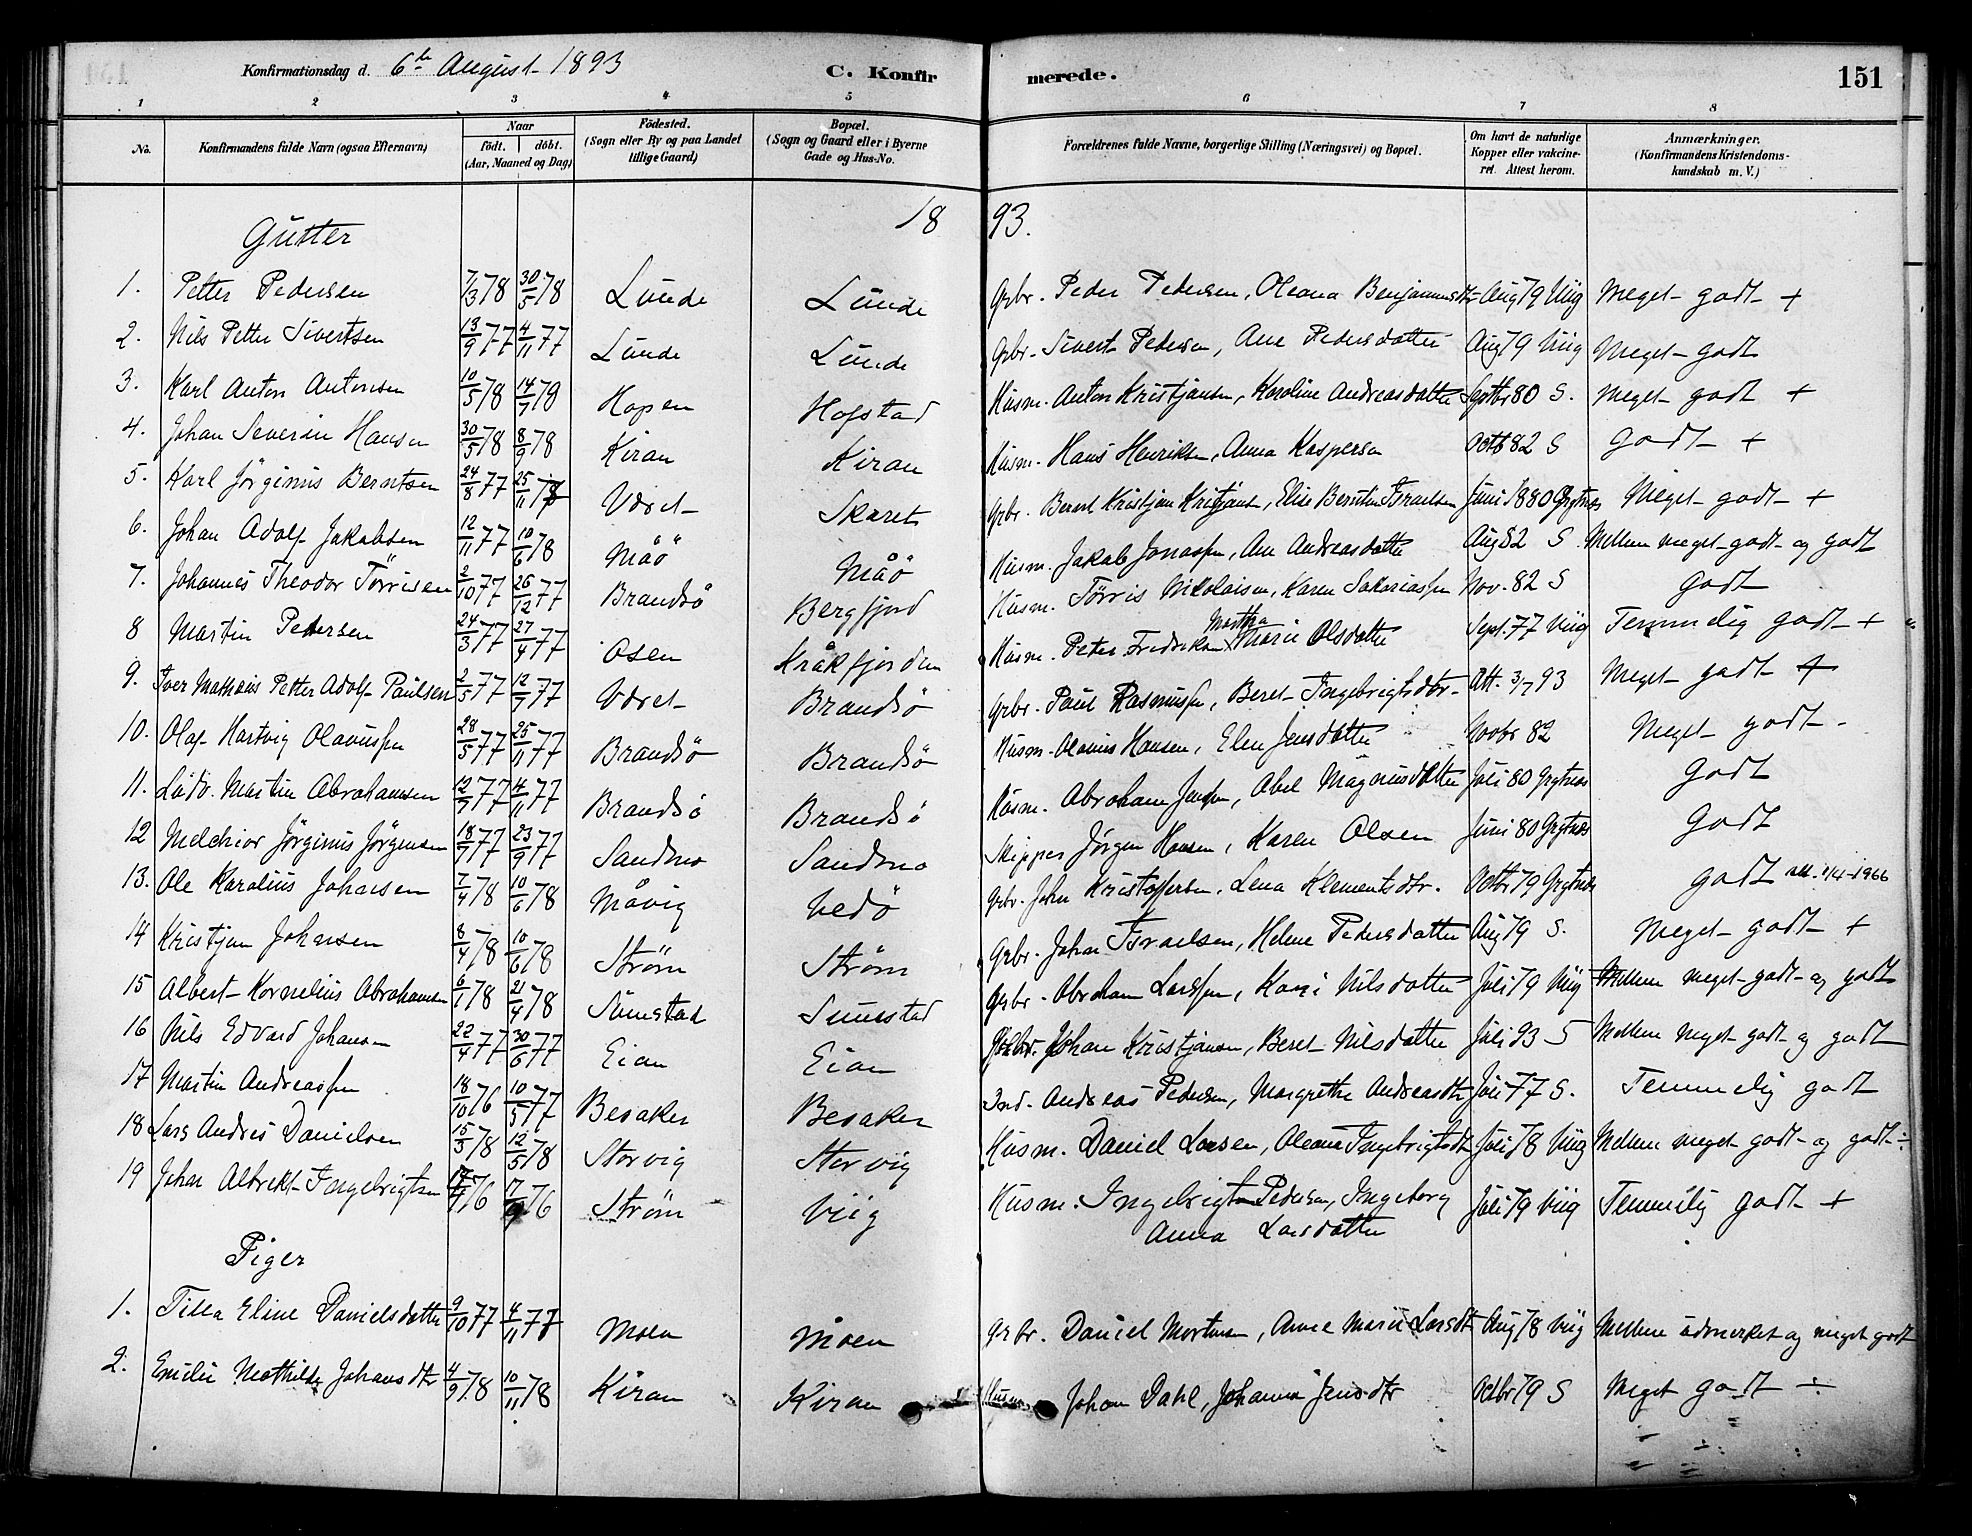 Konfirmationsdag d. 6te August 1893 C. Konfir merede. 151
1 2 3 4 5 6 7 8
No. Konfirmandens fulde Navn (ogsaa Efternavn) Naar födt. döbt. (Aar, Maaned og Dag) Födested. (Sogn eller By og paa Landet tillige Gaard) Bopæl. (Sogn og Gaard eller i Byerne Gade og Hus-No. Forældrenes fulde Navne, borgerlige Stilling (Næringsvei) og Bopæl. Om havt de naturlige Kopper eller vakcineret. Attest herom. Anmærkninger. (Konfirmandens Kristendomskundskab m. V.)
1893.
Gutter
1. Petter Pedersen 7/3 78 30/5 78 Lunde Lunde Grbr. Peder Pedersen, Oleana Benjaminsdtr Aug 79 Viig Meget godt +
2. Nils Petter Sivertsen 13/9 77 4/11 77 Lunde Lunde Grbr. Sivert Pedersen, Ane Pedersdatter Aug 79 Viig Meget godt
3. Karl Anton Antonsen 10/5 78 14/7 78 Hopen Hofstad Husm. Anton Kristjansen, Karoline Andreasdatter Septbr 80 S. Meget godt +
4. Johan Severin Hansen 30/5 78 8/9 78 Kiran Kiran Husm. Hans Henriksen, Anna Kaspersen Octb 82 S Godt +
5. Karl Jörginus Berntsen 24/8 77 25/11 77 Været Skaret Grbr. Bernt Kristjan Kristjansen, Elise Berntine Israelsen Juni 1880 Grgtnes Meget godt +
6. Johan Adolf Jakobsen 12/11 77 10/6 78 Måö Måö Husm. Jakob Jonassen, Ane Andreasdatter Aug 82 S Mellem meget godt og godt
7. Johannes Theodor Törrisen 2/10 77 26/12 77 Brandsö Bergfjord Husm. Törris Nikolaisen, Karen Sakariassen Nov. 82 S Godt
8 Martin Petersen 24/3 77 27/4 77 Osen Kråkfjorden Husm. Peter Fredriksen, Martha Marie Olsdatter Sept. 77 Viig Temmelig godt +
9. Iver Mathæus Petter Adolf Paulsen 2/5 77 12/7 77 Været Brandsö Grbr. Paul Rasmussen, Beret Ingebrigtsdtr. Att. 3/7 93 Meget godt +
10. Olaf Hartvig Olavussen 28/5 77 25/11 77 Brandsö Brandsö Husm. Olavus Hansen, Elen Jensdatter Novbr 82 Meget godt
11. Ludv. Martin Abrahamsen 12/9 77 14/11 77 Brandsö Brandsö Husm. Abraham Jensen, Abel Magnusdatter Juli 80 Grgtnes Godt
12 Melchior Jörginus Jörgensen 18/7 77 23/9 77 Sandmo Sandmo Skipper Jörgen Hansen, Karen Olsen Juni 80 Grgtnes Godt
13. Ole Karolius Johansen 7/4 78 10/6 78 Måvig Vedö Grbr. Johan Kristoffersen, Lena Klementsdtr. Octbr 79 Grgtnes godt 1/4-1966
14 Kristjan Johansen 8/4 78 10/6 78 Ström Ström Grbr. Johan Israelsen, Helene Pedersdatter Aug 79 S. Meget godt +
15 Albert Kornelius Abrahamsen 6/1 78 21/4 78 Sumstad Sumstad Grbr. Abraham Larssen, Kari Nilsdatter Juli 79 Viig Mellem meget godt og godt
16 Nils Edvard Johansen 22/4 77 30/6 77 Eian Eian Grbr. Johan Kristjansen, Beret Nilsdatter Juli 93 S Mellem meget godt og godt
17 Martin Andreassen 18/10 76 10/5 77 Besaker Besaker Ind. Andreas Pedersen, Margrethe Andreasdtr Juli 77 S. Temmelig godt
18 Lars Andreas Danielsen 15/3 78 12/5 78 Storvig Storvig Husm. Daniel Larsen, Oleana Ingebrigtsdtr Juli 78 Viig Mellem meget godt og godt ÷
19 Johan Albrekt Ingebrigtsen 76 17/9 76 Ström Viig Husm. Ingebrigt Pedersen, Ingeborg Juli 79 Viig Temmelig godt +
Anna Larsdatter
Piger
1. Tilla Eline Danielsdatter 9/10 77 4/11 77 Moen Moen Grbr. Daniel Mortensen, Anne Marie Larsdtr Aug 78 Viig Mellem udmerket og meget godt
2. Emilie Mathilde Johansdtr 4/9 78 10/11 78 Kiran Kiran Husm. Johan Dahl, Johanna Jensdtr Octbr 79 S Meget godt ÷